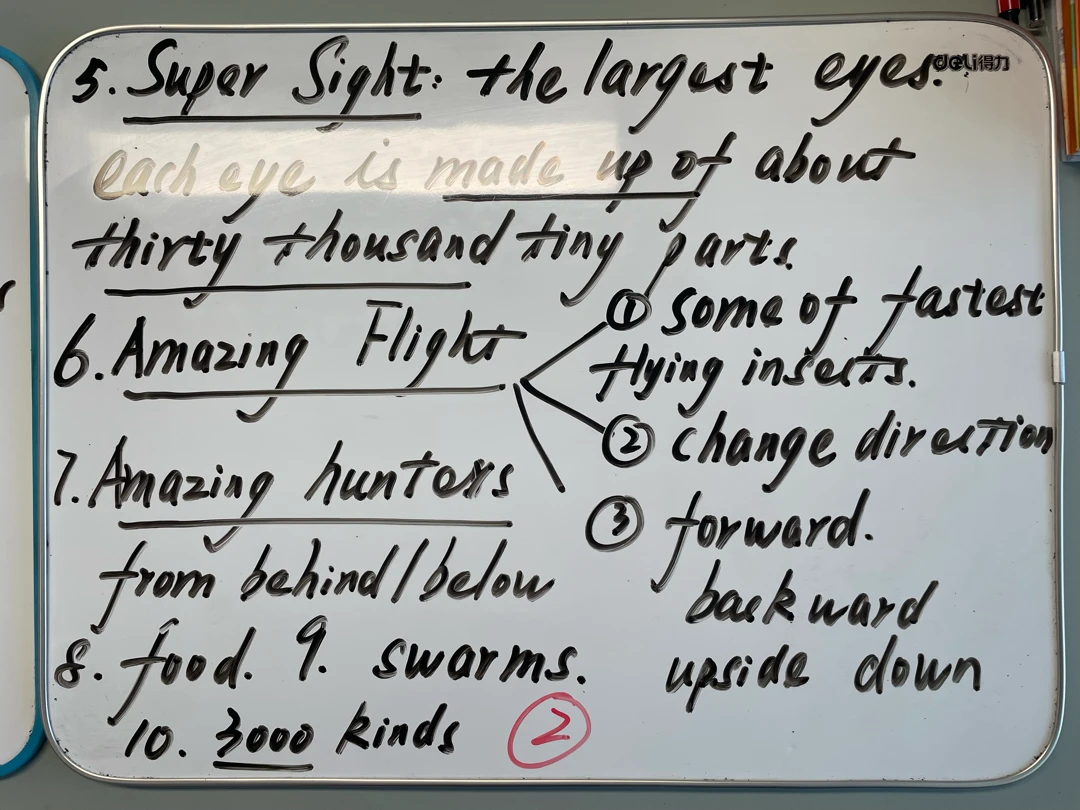 5. Super Sight: the largest eyes.
deli得力
each eye is made up of about
thirty thousand tiny parts.
6. Amazing Flight
① some of fastest
flying insects.
② change direction
③ forward.
backward
upside down
7. Amazing hunters
from behind/below
8. food. 9. swarms.
10. 3000 kinds
②